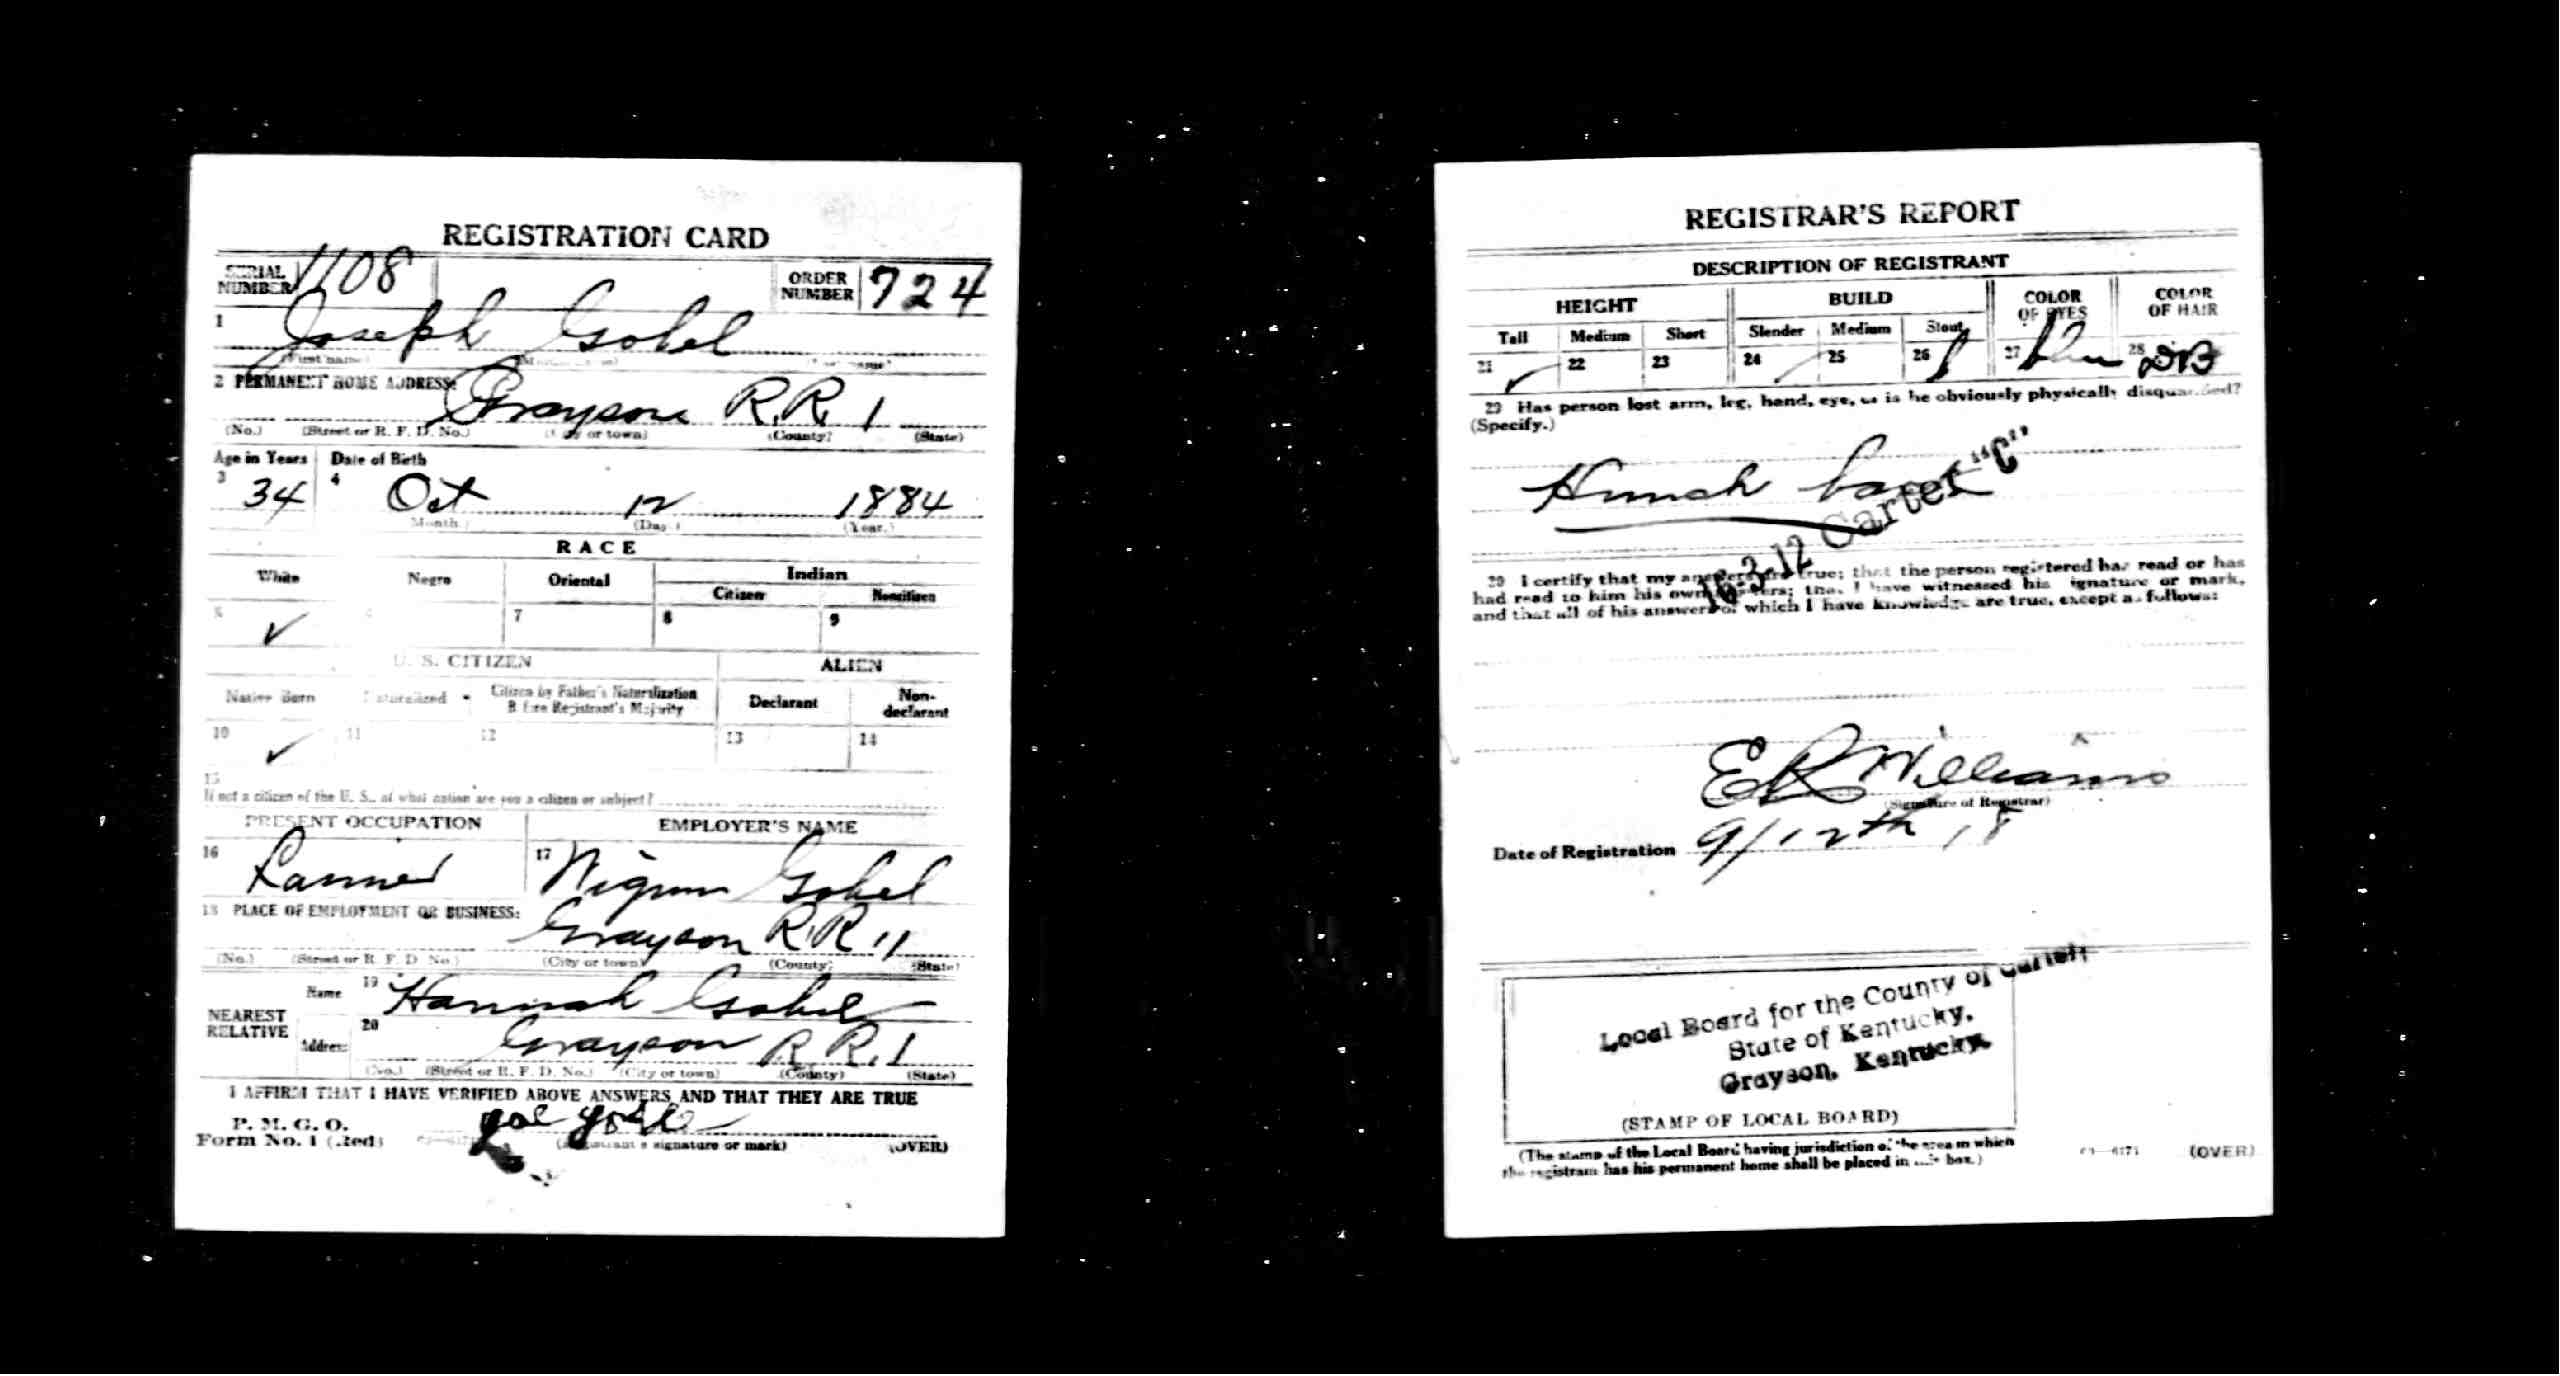 REGISTRATION CARD
SERIAL NUMBER 1108
ORDER NUMBER 724
1 Joseph Gobel
(First name) (Middle name) (Last name)
2 PERMANENT HOME ADDRESS:
Grayson R.R. 1
(No.) (Street or R. F. D. No.) (City or town) (County) (State)
Age in Years Date of Birth
3 34 4 Oct 12 1884
(Month.) (Day.) (Year.)
RACE
White Negro Oriental Indian
Citizen Noncitizen
5 ✓ 6 7 8 9
U. S. CITIZEN ALIEN
Native Born Naturalized Citizen by Father's Naturalization Before Registrant's Majority Declarant Non-declarant
10 ✓ 11 12 13 14
15
If not a citizen of the U. S., of what nation are you a citizen or subject?
PRESENT OCCUPATION EMPLOYER'S NAME
16 17 Gobel
18 PLACE OF EMPLOYMENT OR BUSINESS:
Grayson R R 11
(No.) (Street or R. F. D. No.) (City or town) (County) (State)
NEAREST RELATIVE
Name 19 Hannah Gobel
Address 20 Grayson R R. 1
(No.) (Street or R. F. D. No.) (City or town) (County) (State)
I AFFIRM THAT I HAVE VERIFIED ABOVE ANSWERS AND THAT THEY ARE TRUE
P. M. G. O.
Form No. 1 (Red)
(Registrant's signature or mark) (OVER)
REGISTRAR'S REPORT
DESCRIPTION OF REGISTRANT
HEIGHT BUILD COLOR OF EYES COLOR OF HAIR
Tall Medium Short Slender Medium Stout
21 ✓ 22 23 24 25 26 27 28 DB
29 Has person lost arm, leg, hand, eye, or is he obviously physically disqualified?
(Specify.)
Hunch back
16-3-12 Carter "C"
30 I certify that my answers are true; that the person registered has read or has
had read to him his own answers; that I have witnessed his signature or mark,
and that all of his answers of which I have knowledge are true, except as follows:
E R Williams
(Signature of Registrar)
Date of Registration 9/12th 18
Local Board for the County of Carter,
State of Kentucky,
Grayson, Kentucky.
(STAMP OF LOCAL BOARD)
(The stamp of the Local Board having jurisdiction of the area in which
the registrant has his permanent home shall be placed in this box.)
03—6171 (OVER)